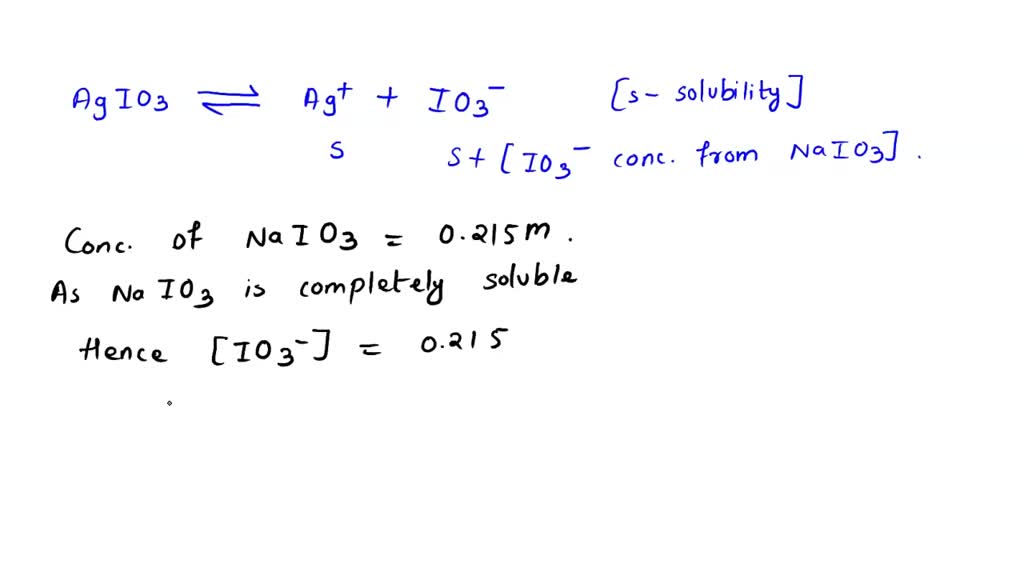 AgIO₃ ⇌ Ag⁺ + IO₃⁻ [s - solubility]
S S + [IO₃⁻ conc. from NaIO₃].
Conc. of NaIO₃ = 0.215 m.
As NaIO₃ is completely soluble
Hence [IO₃⁻] = 0.215